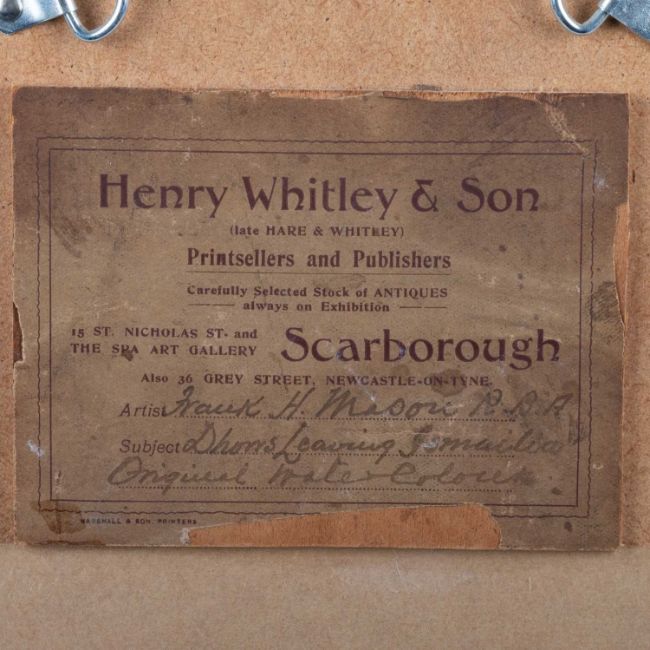 Henry Whitley & Son
(late HARE & WHITLEY)
Printsellers and Publishers
Carefully Selected Stock of ANTIQUES
always on Exhibition
15 ST. NICHOLAS ST. and
THE SPA ART GALLERY
Scarborough
Also 36 GREY STREET, NEWCASTLE-ON-TYNE.
Artist Frank H. Mason R.B.A
Subject Dhows Leaving Ismailia
Original Water Colour
MARSHALL & SON, PRINTERS